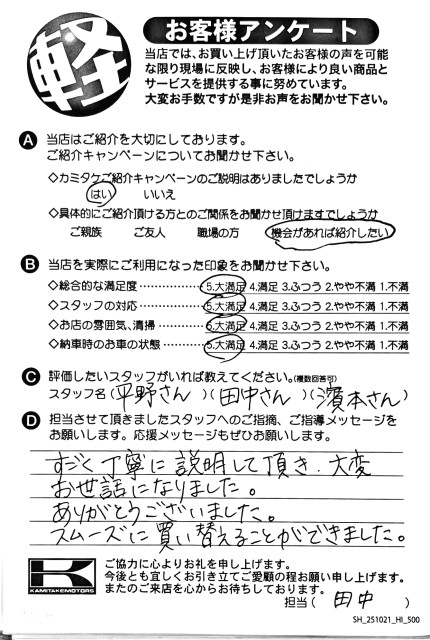 軽
お客様アンケート
当店では、お買い上げ頂いたお客様の声を可能
な限り現場に反映し、お客様により良い商品と
サービスを提供する事に努めています。
大変お手数ですが是非お声をお聞かせ下さい。
A 当店はご紹介を大切にしております。
ご紹介キャンペーンについてお聞かせ下さい。
◇カミタケご紹介キャンペーンのご説明はありましたでしょうか
はい いいえ
◇具体的にご紹介頂ける方とのご関係をお聞かせ頂けますでしょうか
ご親族 ご友人 職場の方 機会があれば紹介したい
B 当店を実際にご利用になった印象をお聞かせ下さい。
◇総合的な満足度 ……………… 5.大満足 4.満足 3.ふつう 2.やや不満 1.不満
◇スタッフの対応 ……………… 5.大満足 4.満足 3.ふつう 2.やや不満 1.不満
◇お店の雰囲気、清掃 ………… 5.大満足 4.満足 3.ふつう 2.やや不満 1.不満
◇納車時のお車の状態 ………… 5.大満足 4.満足 3.ふつう 2.やや不満 1.不満
C 評価したいスタッフがいれば教えてください。(複数回答可)
スタッフ名(平野さん)(田中さん)(濱本さん)
D 担当させて頂きましたスタッフへのご指摘、ご指導メッセージを
お願いします。応援メッセージもぜひお願いします。
すごく丁寧に説明して頂き、大変
お世話になりました。
ありがとうございました。
スムーズに買い替えることができました。
KAMITAKE MOTORS
ご協力に心よりお礼を申し上げます。
今後とも宜しくお引き立てご愛顧の程お願い申し上げます。
またのご来店を心からお待ちしております。
担当(田中)
SH_251021_HI_500